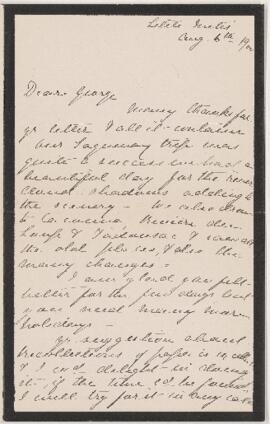 Little Metis
Aug. 6th 190
Dear George
Many thanks for
yr letter & all it contains
Our Saguenay trip was
quite a success we had a
beautiful day for the river
cloud shadows adding to
the scenery - We also drove
to Cacouna Rivière du
Loup & Tadousac & saw all
the old places, & also the
many changes -
I am glad you felt
better for the few days but
you need many more
holidays -
yr suggestion about
recollections of papa is excellent
& I sd delight in doing
it, if the time cd be found
I will try for it in any case